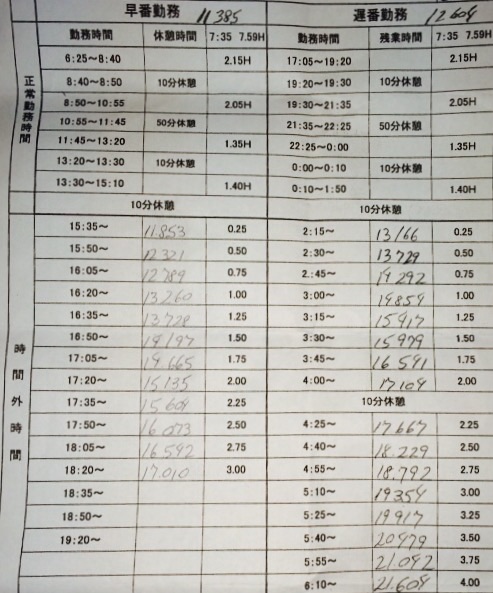 早番勤務 11385 遅番勤務 12604
正常勤務時間 勤務時間 休憩時間 7:35 7.59H 勤務時間 残業時間 7:35 7.59H
6:25～8:40 2.15H 17:05～19:20 2.15H
8:40～8:50 10分休憩 19:20～19:30 10分休憩
8:50～10:55 2.05H 19:30～21:35 2.05H
10:55～11:45 50分休憩 21:35～22:25 50分休憩
11:45～13:20 1.35H 22:25～0:00 1.35H
13:20～13:30 10分休憩 0:00～0:10 10分休憩
13:30～15:10 1.40H 0:10～1:50 1.40H
時間外時間 10分休憩 10分休憩
15:35～ 11.853 0.25 2:15～ 13166 0.25
15:50～ 12321 0.50 2:30～ 13729 0.50
16:05～ 12789 0.75 2:45～ 14292 0.75
16:20～ 13260 1.00 3:00～ 14854 1.00
16:35～ 13728 1.25 3:15～ 15417 1.25
16:50～ 14197 1.50 3:30～ 15979 1.50
17:05～ 14665 1.75 3:45～ 16541 1.75
17:20～ 15135 2.00 4:00～ 17104 2.00
17:35～ 15604 2.25 10分休憩
17:50～ 16073 2.50 4:25～ 17667 2.25
18:05～ 16542 2.75 4:40～ 18.229 2.50
18:20～ 17.010 3.00 4:55～ 18.792 2.75
18:35～ 5:10～ 19354 3.00
18:50～ 5:25～ 19917 3.25
19:20～ 5:40～ 20479 3.50
5:55～ 21.042 3.75
6:10～ 21.604 4.00